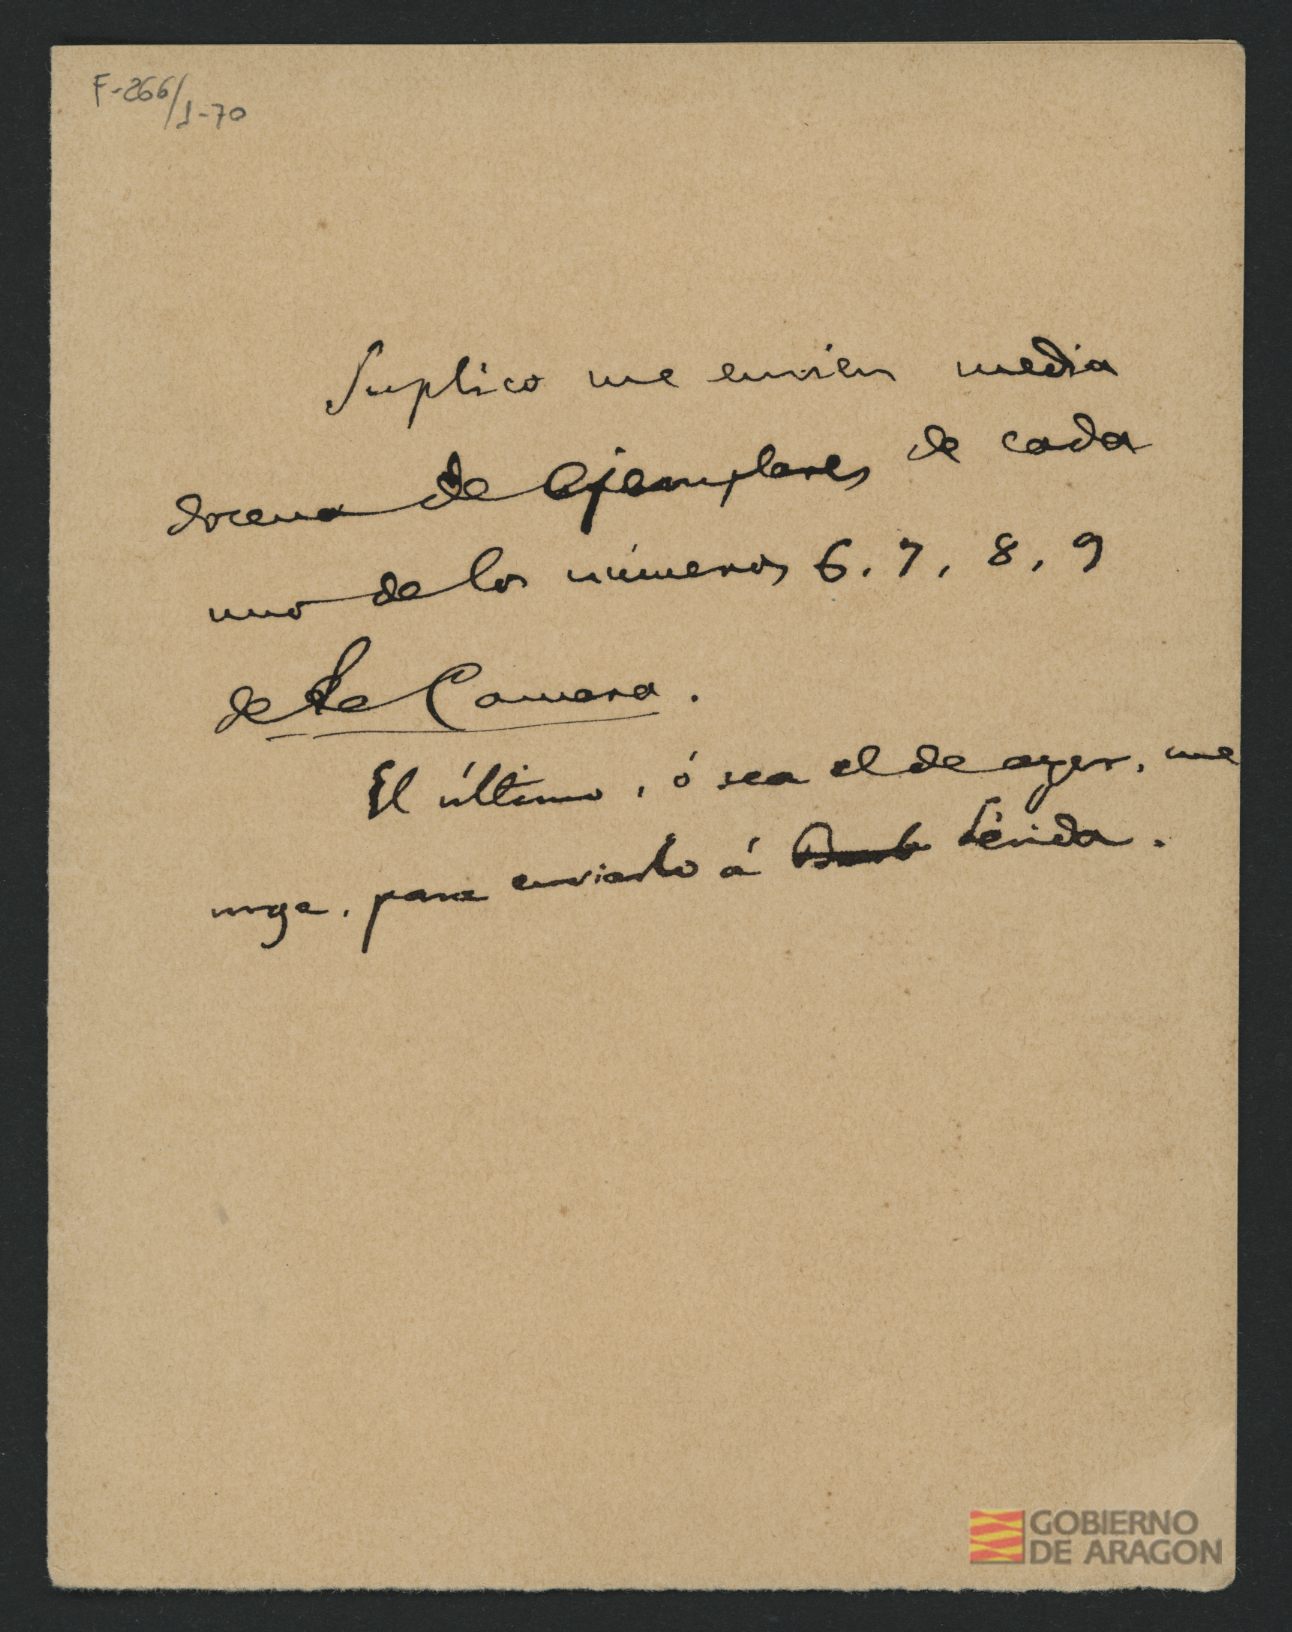 F-266/1-70
Suplico me envien media
docena de ejemplares de cada
uno de los números 6, 7, 8, 9
de La Camara.
El último, ó sea el de ayer, me
urge, para enviarlo á Lérida.
GOBIERNO
DE ARAGON